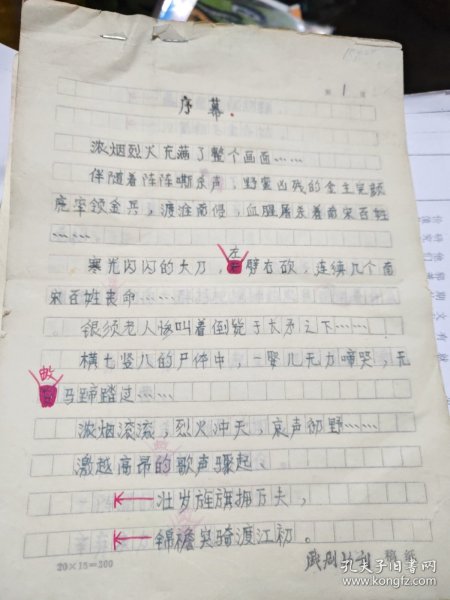 第 1 页
序幕.
浓烟烈火充满了整个画面……
伴随着阵阵嘶杀声，野蛮凶残的金主完颜
亮率领金兵，渡淮南侵，血腥屠杀着南宋百姓
……
寒光闪闪的大刀，左劈右砍，连续几个南
宋百姓丧命……
银须老人惨叫着倒毙于大矛之下……
横七竖八的尸体中，一婴儿无力啼哭，无
数马蹄踏过……
浓烟滚滚，烈火冲天，哀声彻野……
激越高昂的歌声骤起、
←壮岁旌旗拥万夫，
←锦襜突骑渡江初。
20×15=300
稿纸
孔夫子旧书网